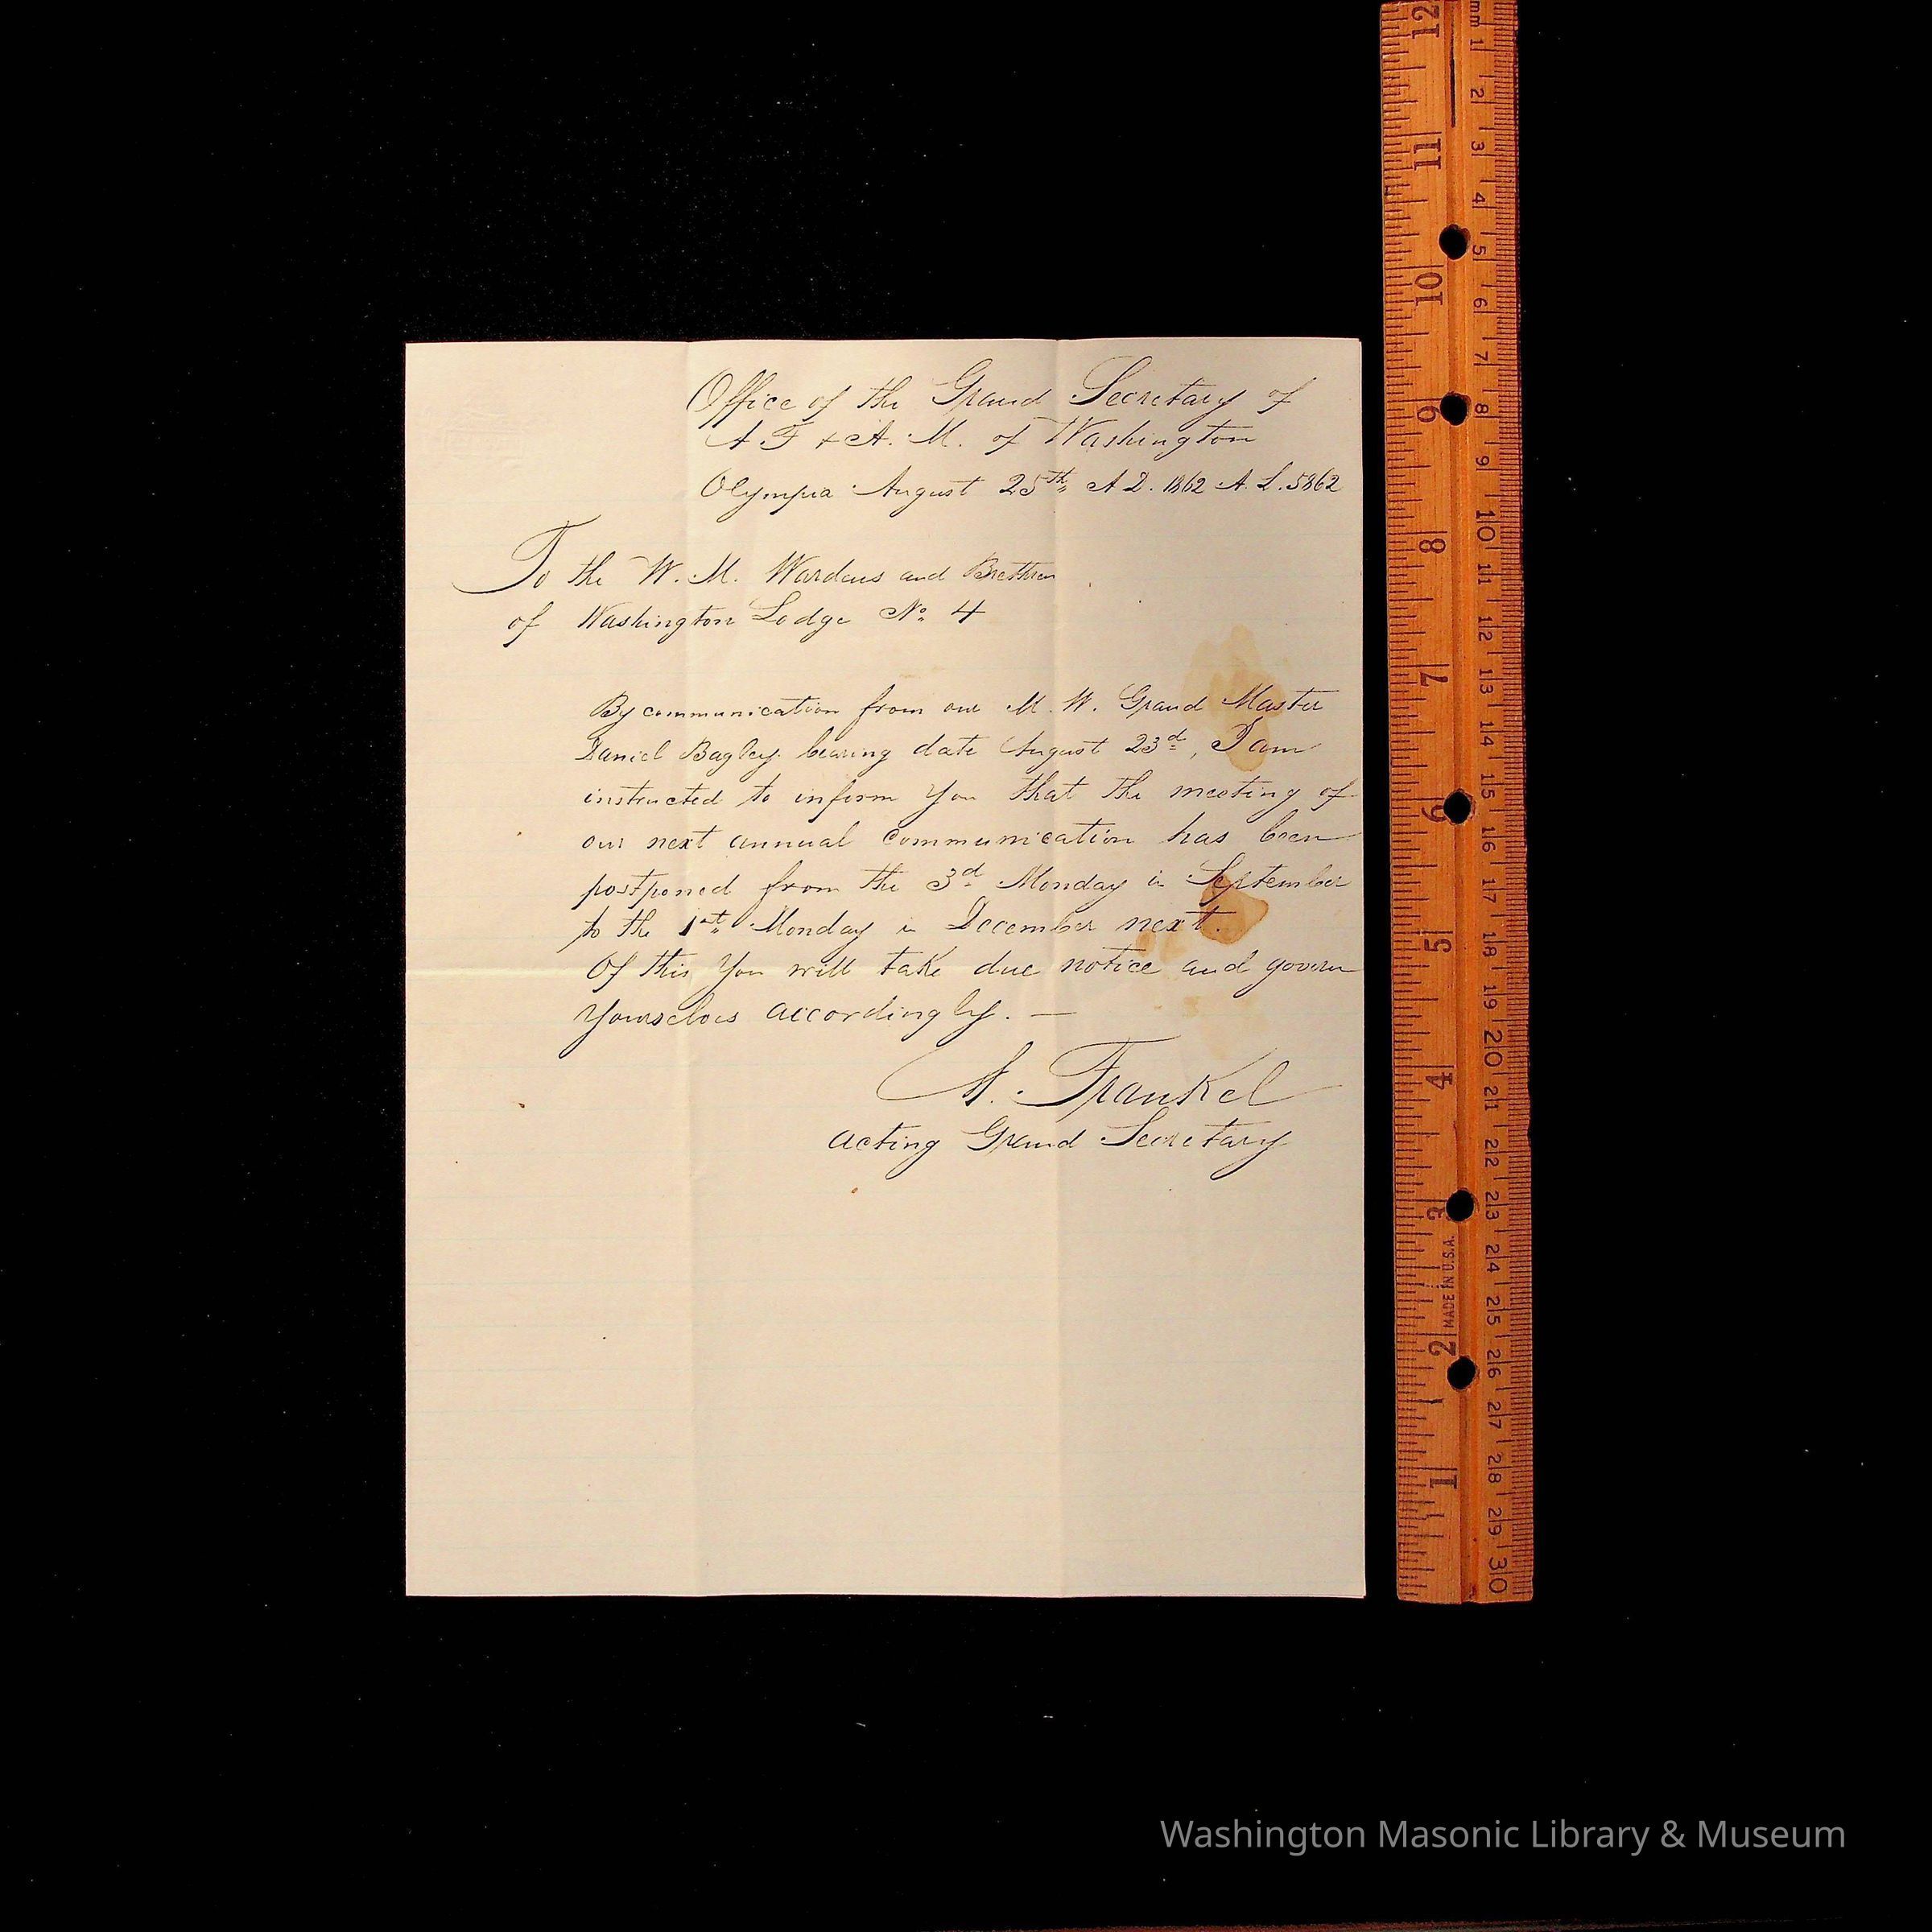 Office of the Grand Secretary of
A. F & A. M. of Washington
Olympia August 25th A D. 1862 A. L. 5862
To the W. M. Wardens and Brethren
of Washington Lodge No. 4
By communication from our M. W. Grand Master
Daniel Bagley bearing date August 23d, I am
instructed to inform You that the meeting of
our next annual Communication has been
postponed from the 3d Monday in September
to the 1st Monday in December next.
Of this You will take due notice and govern
Yourselves accordingly. —
A. Frankel
acting Grand Secretary
12 11 10 9 8 7 6 5 4 3 2 1
MADE IN U.S.A.
mm 1 2 3 4 5 6 7 8 9 10 11 12 13 14 15 16 17 18 19 20 21 22 23 24 25 26 27 28 29 30
Washington Masonic Library & Museum